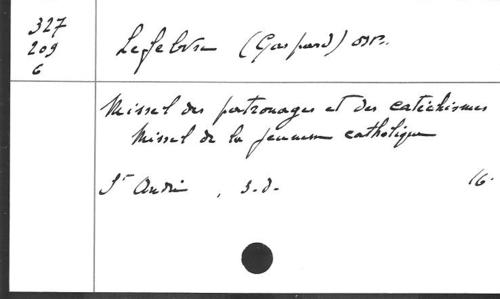 327
209
6
Lefebvre (Gaspard) OSB.
Missel des patronages et des catéchismes
Missel de la jeunesse catholique
St André, s.d. 16.